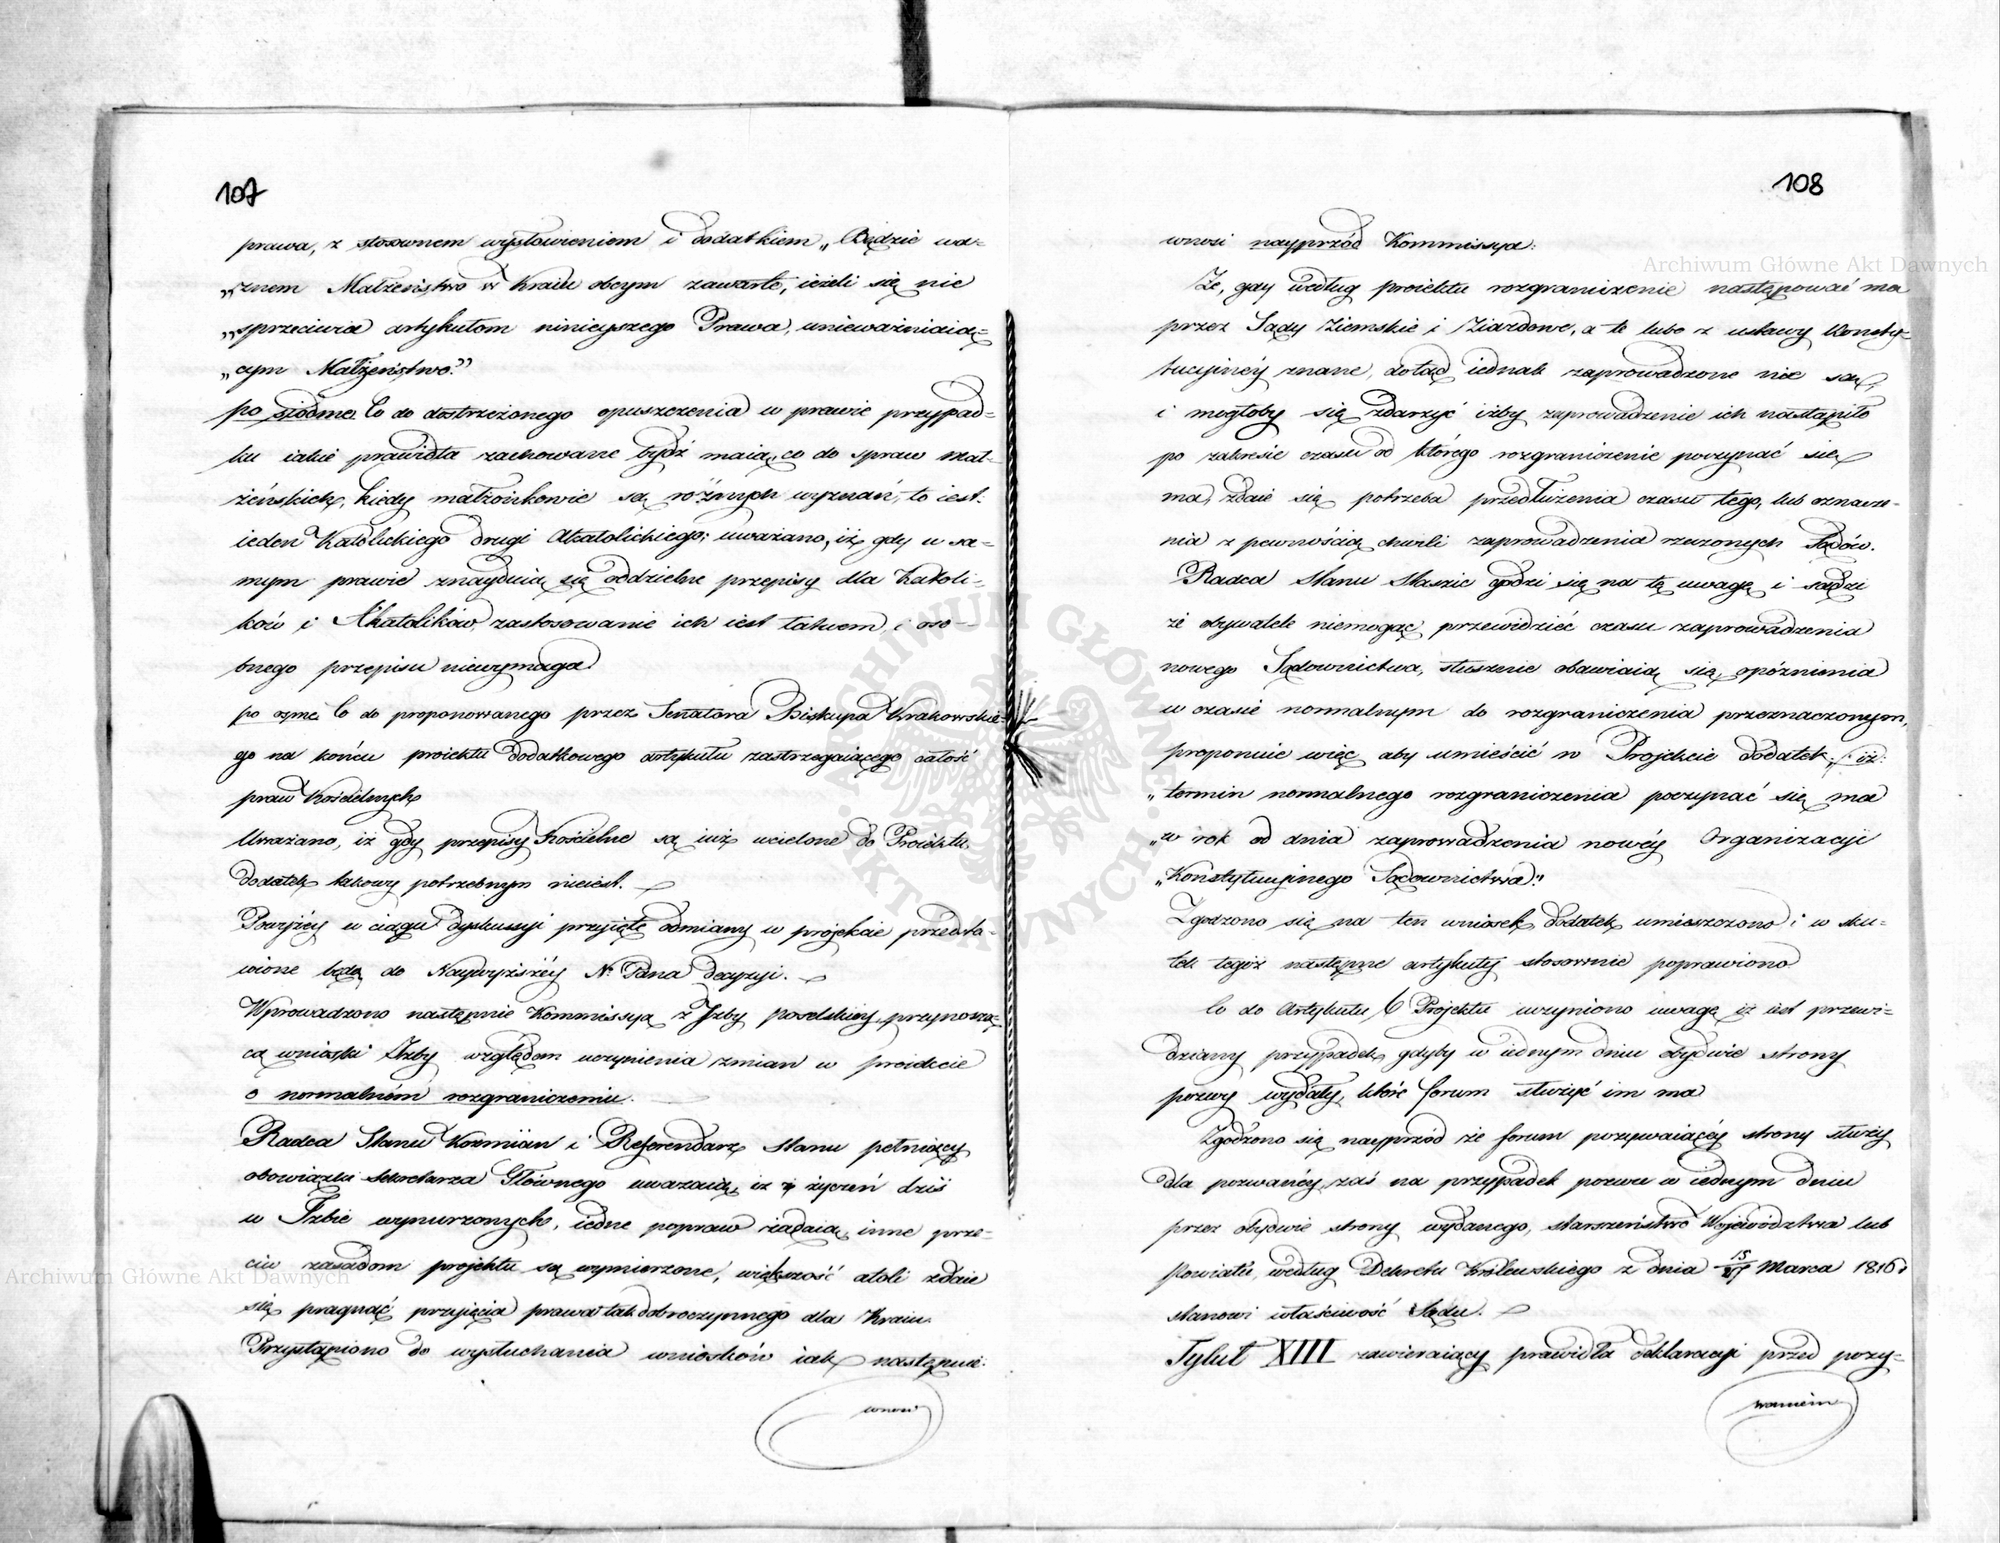 107
prawa, z stosownem wysłowieniem i dodatkiem „Będzie wa-
„żnem Małżeństwo w Kraiu obcym zawarte, ieżeli się nie
„sprzeciwia artykułom ninieyszego Prawa, unieważniaią-
„cym Małżeństwo."
po siódme. Co do dostrzeżonego opuszczenia w prawie przypad-
ku iakie prawidła zachowane bydź maią, co do spraw Mał-
żeńskich, kiedy małżonkowie są różnych wyznań, to iest:
ieden Katolickiego drugi Akatolickiego; uważano, iż gdy w sa-
mym prawie znayduią się oddzielne przepisy dla Katoli-
ków i Akatolików, zastosowanie ich iest łatwem, i oso-
bnego przepisu niewymaga.
po ósme. Co do proponowanego przez Senatora Biskupa Krakowskie-
go na końcu proiektu dodatkowego artykułu zastrzegaiącego całość
praw Kościelnych
Uważano, iż gdy przepisy Kościelne są iuż wcielone do Proiektu,
dodatek takowy potrzebnym nieiest.
Powyżéy w ciągu dyskussyi przyięte odmiany w projekcie przedsta-
wione będą do Naywyższéy N. Pana decyzyi.
Wprowadzono następnie Kommissyą z Izby poselskiéy, przynoszą-
cą wnioski Izby względem uczynienia zmian w proiekcie
o normalném rozgraniczeniu.
Radca Stanu Koźmian i Referendarz Stanu pełniący
obowiązki Sekretarza Głównego uważaią, iż z życzeń dziś
w Izbie wynurzonych, iedne popraw żądaią, inne prze-
ciw zasadom projektu są wymierzone, większość atoli zdaie
się pragnąć przyięcia prawa tak dobroczynnego dla Kraiu.
Przystąpiono do wysłuchania wniosków iak następuie:
wnosi
108
wnosi nayprzód Kommissya:
Że, gdy według proiektu rozgraniczenie następować ma
przez Sądy Ziemskie i Ziazdowe, a te lubo z ustawy Konsty-
tucyjnéy znane, dotąd iednak zaprowadzone nie są,
i mogłoby się zdarzyć iżby zaprowadzenie ich nastąpiło
po zakresie czasu od którego rozgraniczenie poczynać się
ma, zdaie się potrzeba przedłużenia czasu tego, lub oznacze-
nia z pewnością chwili zaprowadzenia rzeczonych Sądów.
Radca Stanu Staszic godzi się na tę uwagę i sądzi
że obywatele niemogąc przewidzieć czasu zaprowadzenia
nowego Sądownictwa, słusznie obawiaią się opóźnienia
w czasie normalnym do rozgraniczenia przeznaczonym,
proponuie więc aby umieścić w Projekcie dodatek, iż:
„termin normalnego rozgraniczenia poczynać się ma
„w rok od dnia zaprowadzenia nowéy Organizacyi
„Konstytucyjnego Sądownictwa."
Zgodzono się na ten wniosek, dodatek umieszczono i w sku-
tek tegoż następne artykuły stosownie poprawiono.
Co do Artykułu 6 Projektu uczyniono uwagę iż iest przewi-
dziany przypadek, gdyby w iednym dniu obydwie strony
pozwy wydały, które forum służyć im ma
Zgodzono się nayprzód że forum pozywaiącéy strony służy
dla pozwanéy, zaś na przypadek pozwu w iednym dniu
przez obydwie strony wydanego, starszeństwo Województwa lub
Powiatu, według Dekretu Królewskiego z dnia 15 Marca 1816
stanowi właściwość Sądu.
Tytuł XIII zawieraiący prawidła deklaracyi przed pozy-
waniem
Archiwum Główne Akt Dawnych
Archiwum Główne Akt Dawnych
ARCHIWUM GŁÓWNE AKT DAWNYCH